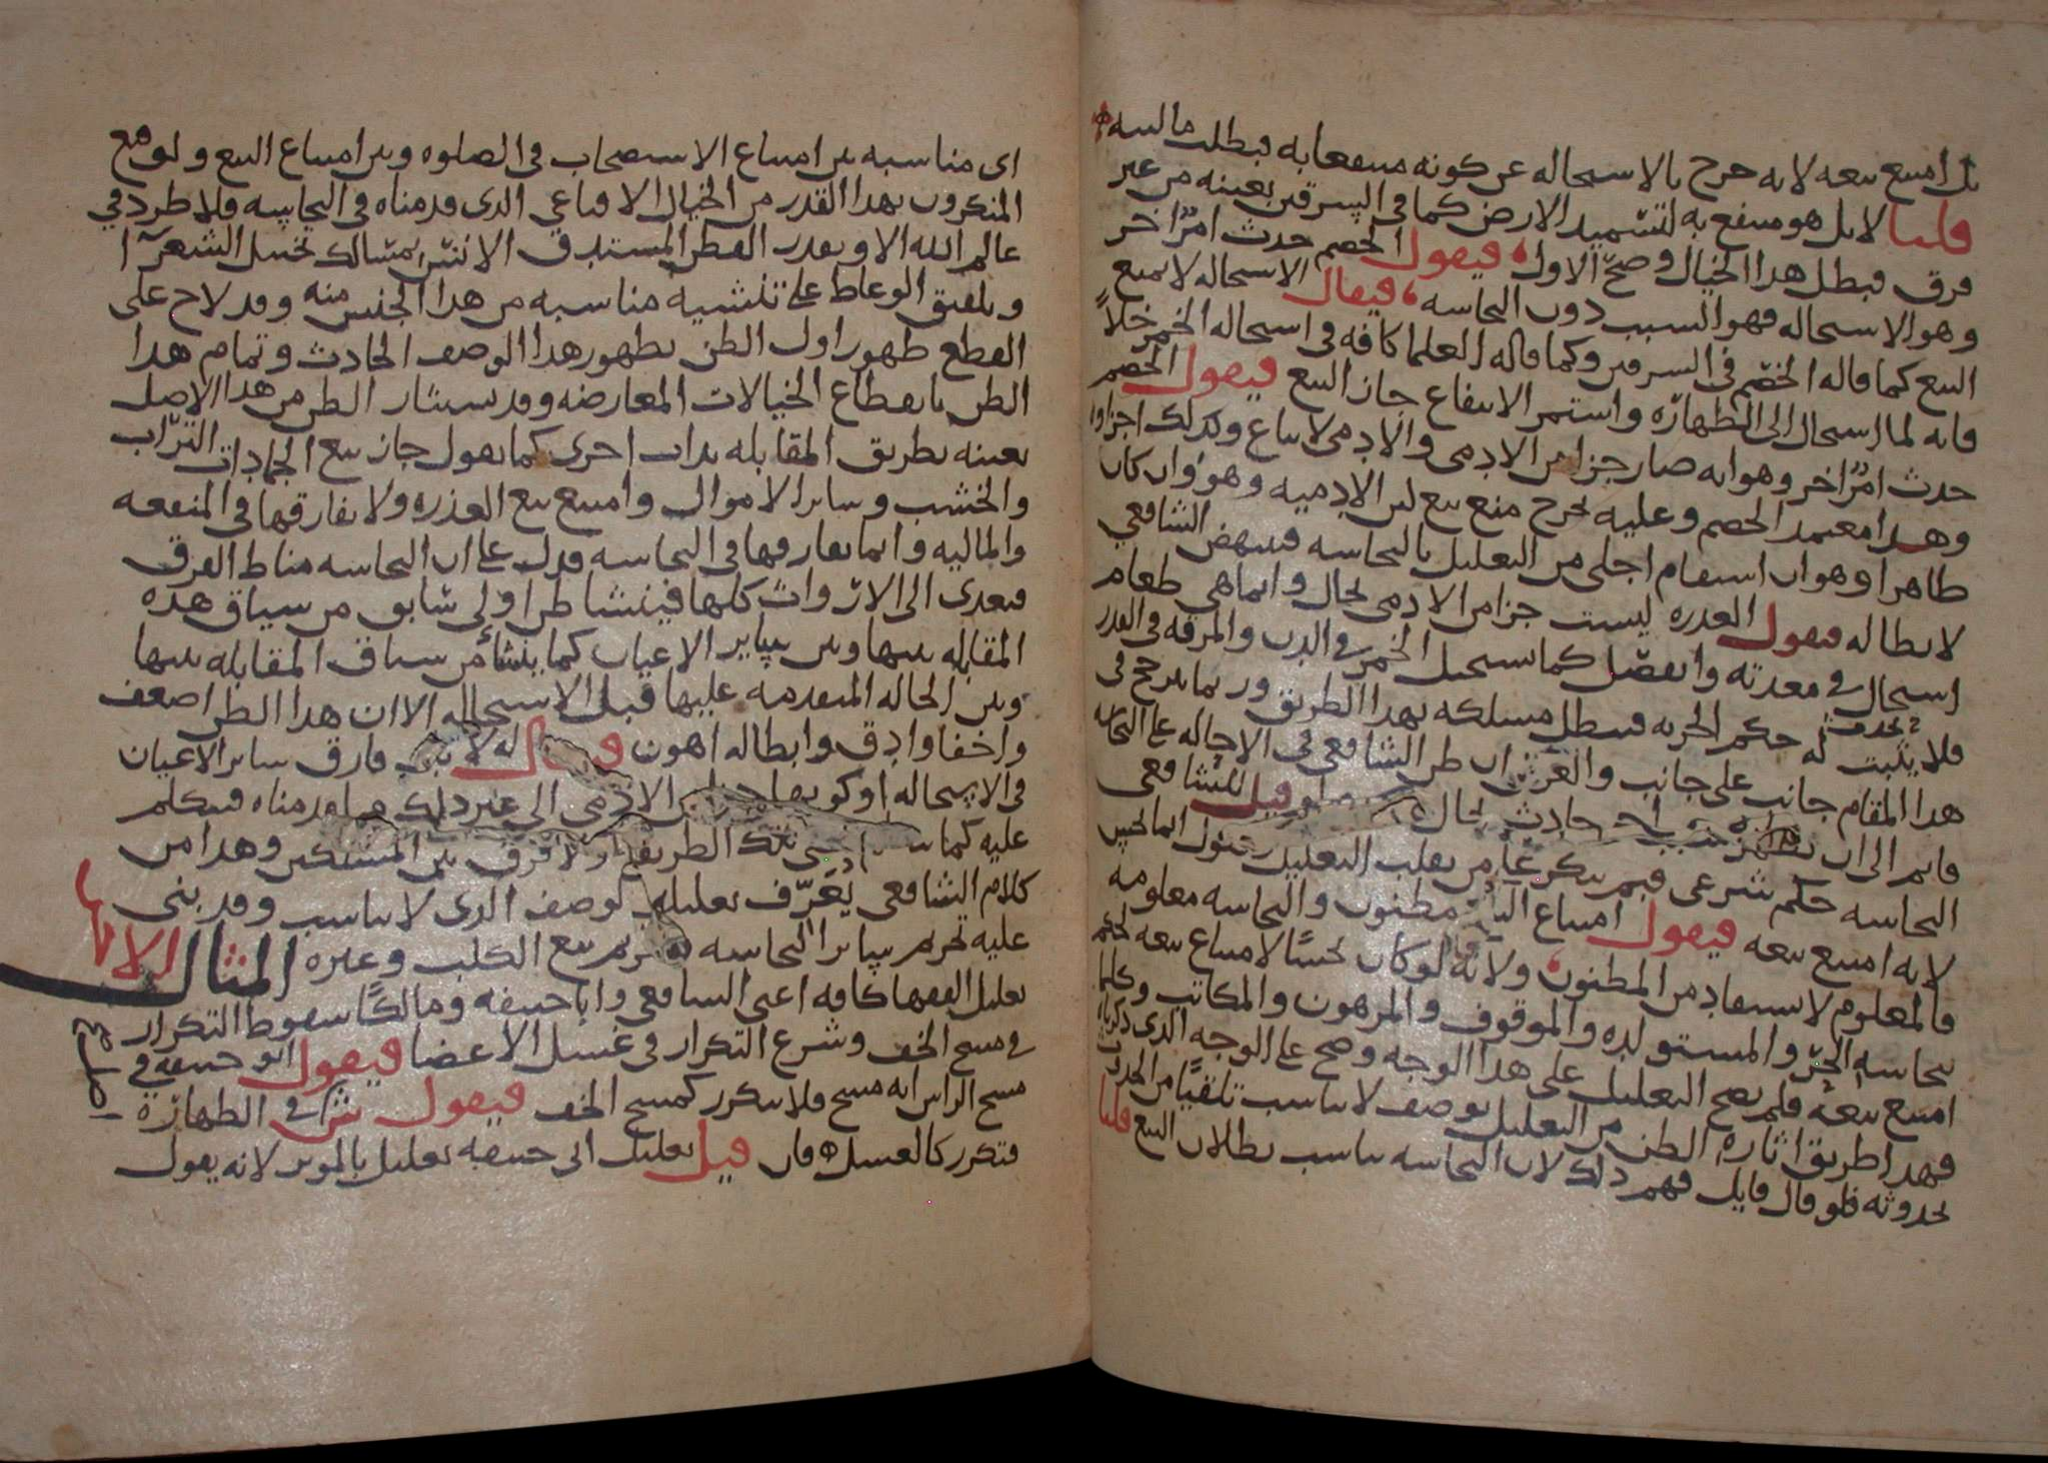 بل امتنع بيعه لانه خرج بالاستحاله عن كونه منتفعا به فبطلت ماليته
قلنا لا بل هو منتفع به لتسميد الارض كما في السرقين بعينه من غير
فرق فبطل هذا الخيال وصح الاول فيقول الخصم حدث امر اخر
وهو الاستحاله فهو السبب دون النجاسه فيقال الاستحاله لا تمنع
البيع كما قاله الخصم في السرقين وكما قاله العلما كافه في استحاله الخمر خلاً
فانه لما استحال الى الطهاره واستمر الانتفاع جاز البيع فيقول الخصم
حدث امر اخر وهو انه صار جزا من الادمي والادمي لا يباع وكذلك اجزاوه
وهذا معتمد الخصم وعليه يخرج منع بيع لبن الادميه وهو وان كان
ظاهرا وهو ان استقام اجلى من التعليل بالنجاسه فينهض الشافعي
لابطاله فيقول العذره ليست جزا من الادمي بحال وانما هي طعام
استحال في معدته وانفصل كما يستحيل الخمر في الدن والمرقه في القدر
فلا يثبت له حكم الحريه فيبطل مسلكه بهذا الطريق وربما يترجح في
هذا المقام جانب على جانب والغرض ان ظن الشافعي في الاحاله على النجاسه
فانم الى ان يظهر حادث بحال فلو قيل للشافعي
النجاسه حكم شرعي فبم تنكر على من يقلب التعليل ويقول انما نجس
لانه امتنع بيعه فيقول امتناع البيع مظنون والنجاسه معلومه
فالمعلوم لا يستفاد من المظنون ولانه لو كان نجسًا لامتناع بيعه لحكم
بنجاسه الحر والمستولده والموقوف والمرهون والمكاتب وكلما
امتنع بيعه فلم يصح التعليل على هذا الوجه وصح على الوجه الذي ذكرناه
فهذا طريق اثاره الظن من التعليل بوصف لا يناسب تلقيًا من الحدوث
بحدوثه فلو قال قايل فهم ذلك لان النجاسه يناسب بطلان البيع قلنا
اي مناسبه بين امتناع الاستصحاب في الصلوه وبين امتناع البيع ولو قنع
المنكرون بهذا القدر من الخيال الاقناعي الذي قدمناه في النجاسه فلا طرد في
عالم الله الا ويقدر الفطن المستدق الانس بمسالك تخييل الشعرا
وتلفيق الوعاظ على تنشيه مناسبه من هذا الجنس منه وقد لاح على
القطع ظهور اول الظن بظهور هذا الوصف الحادث وتمام هذا
الظن بانقطاع الخيالات المعارضه وقد يستثار الظن من هذا الاصل
بعينه بطريق المقابله بذات اخرى كما يقول جاز بيع الجمادات التراب
والخشب وساير الاموال وامتنع بيع العذره ولا نفارقها في المنفعه
والماليه وانما يفارقها في النجاسه فدل على ان النجاسه مناط الفرق
فتعدى الى الارواث كلها فينشا ظن اولى سابق من سياق هذه
المقابله بينها وبين ساير الاعيان كما ينشأ من سياق المقابله بينها
وبين الحاله المتقدمه عليها قبل الاستحاله الا ان هذا الظن اضعف
واخفا وادق وابطاله اهون فارق ساير الاعيان
في الاستحاله او كونها جزا من الادمي الى غير ذلك مما قدمناه فيتكلم
عليه كما الطريق اذ لا فرق بين المسلكين وهذا من
كلام الشافعي يُعَرّف تعليله بوصف الذي لا يناسب وقد بنى
عليه تحريم ساير النجاسه تحريم بيع الكلب وغيره المثال الثالث
تعليل الفقها كافه اعني الشافعي وابا حنيفه ومالكًا سقوط التكرار
في مسح الخف وشرع التكرار في غسل الاعضا فيقول ابو حنيفه في
مسح الراس انه مسح فلا يتكرر كمسح الخف فيقول ش في الطهاره
فتكرر كالغسل فان قيل تعليل ابي حنيفه تعليل بالموثر لانه يقول